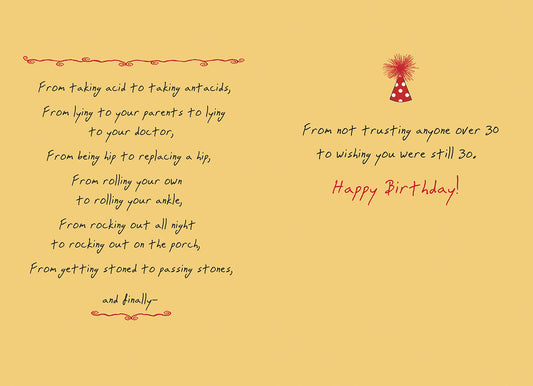 From taking acid to taking antacids,
From lying to your parents to lying
to your doctor,
From being hip to replacing a hip,
From rolling your own
to rolling your ankle,
From rocking out all night
to rocking out on the porch,
From getting stoned to passing stones,
and finally—
From not trusting anyone over 30
to wishing you were still 30.
Happy Birthday!